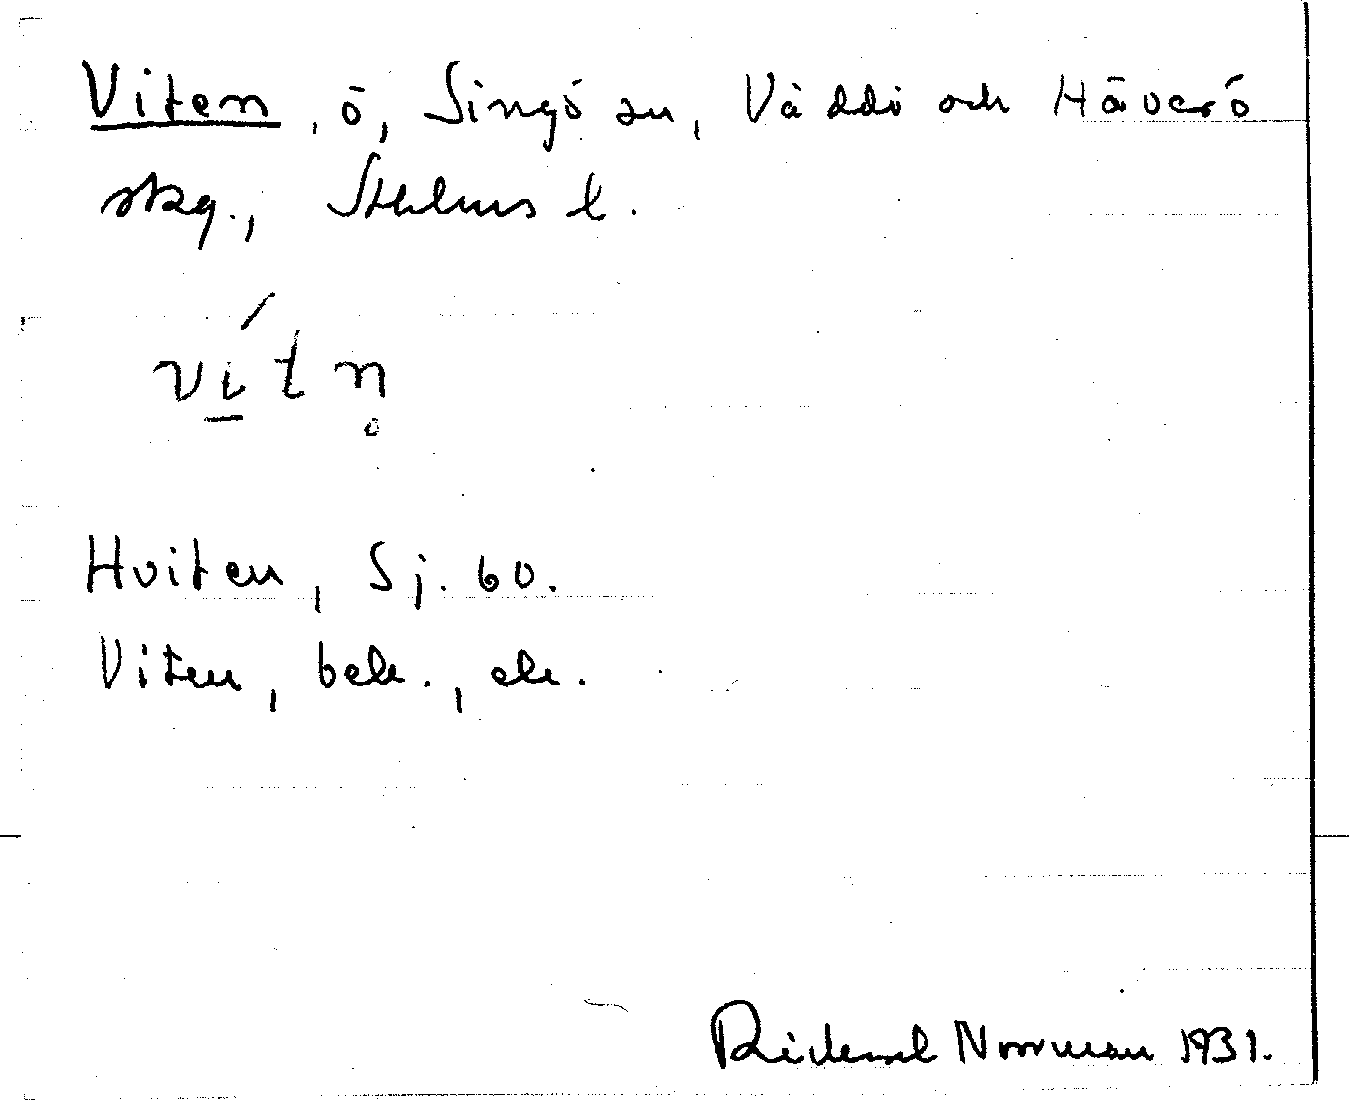 Viten, ö, Singö sn, Väddö och Häverö
skg., Sthlms l.
vítn̥
Hviten, Sj. 60.
Viten, bek., ek.
Rickard Norrman 1931.